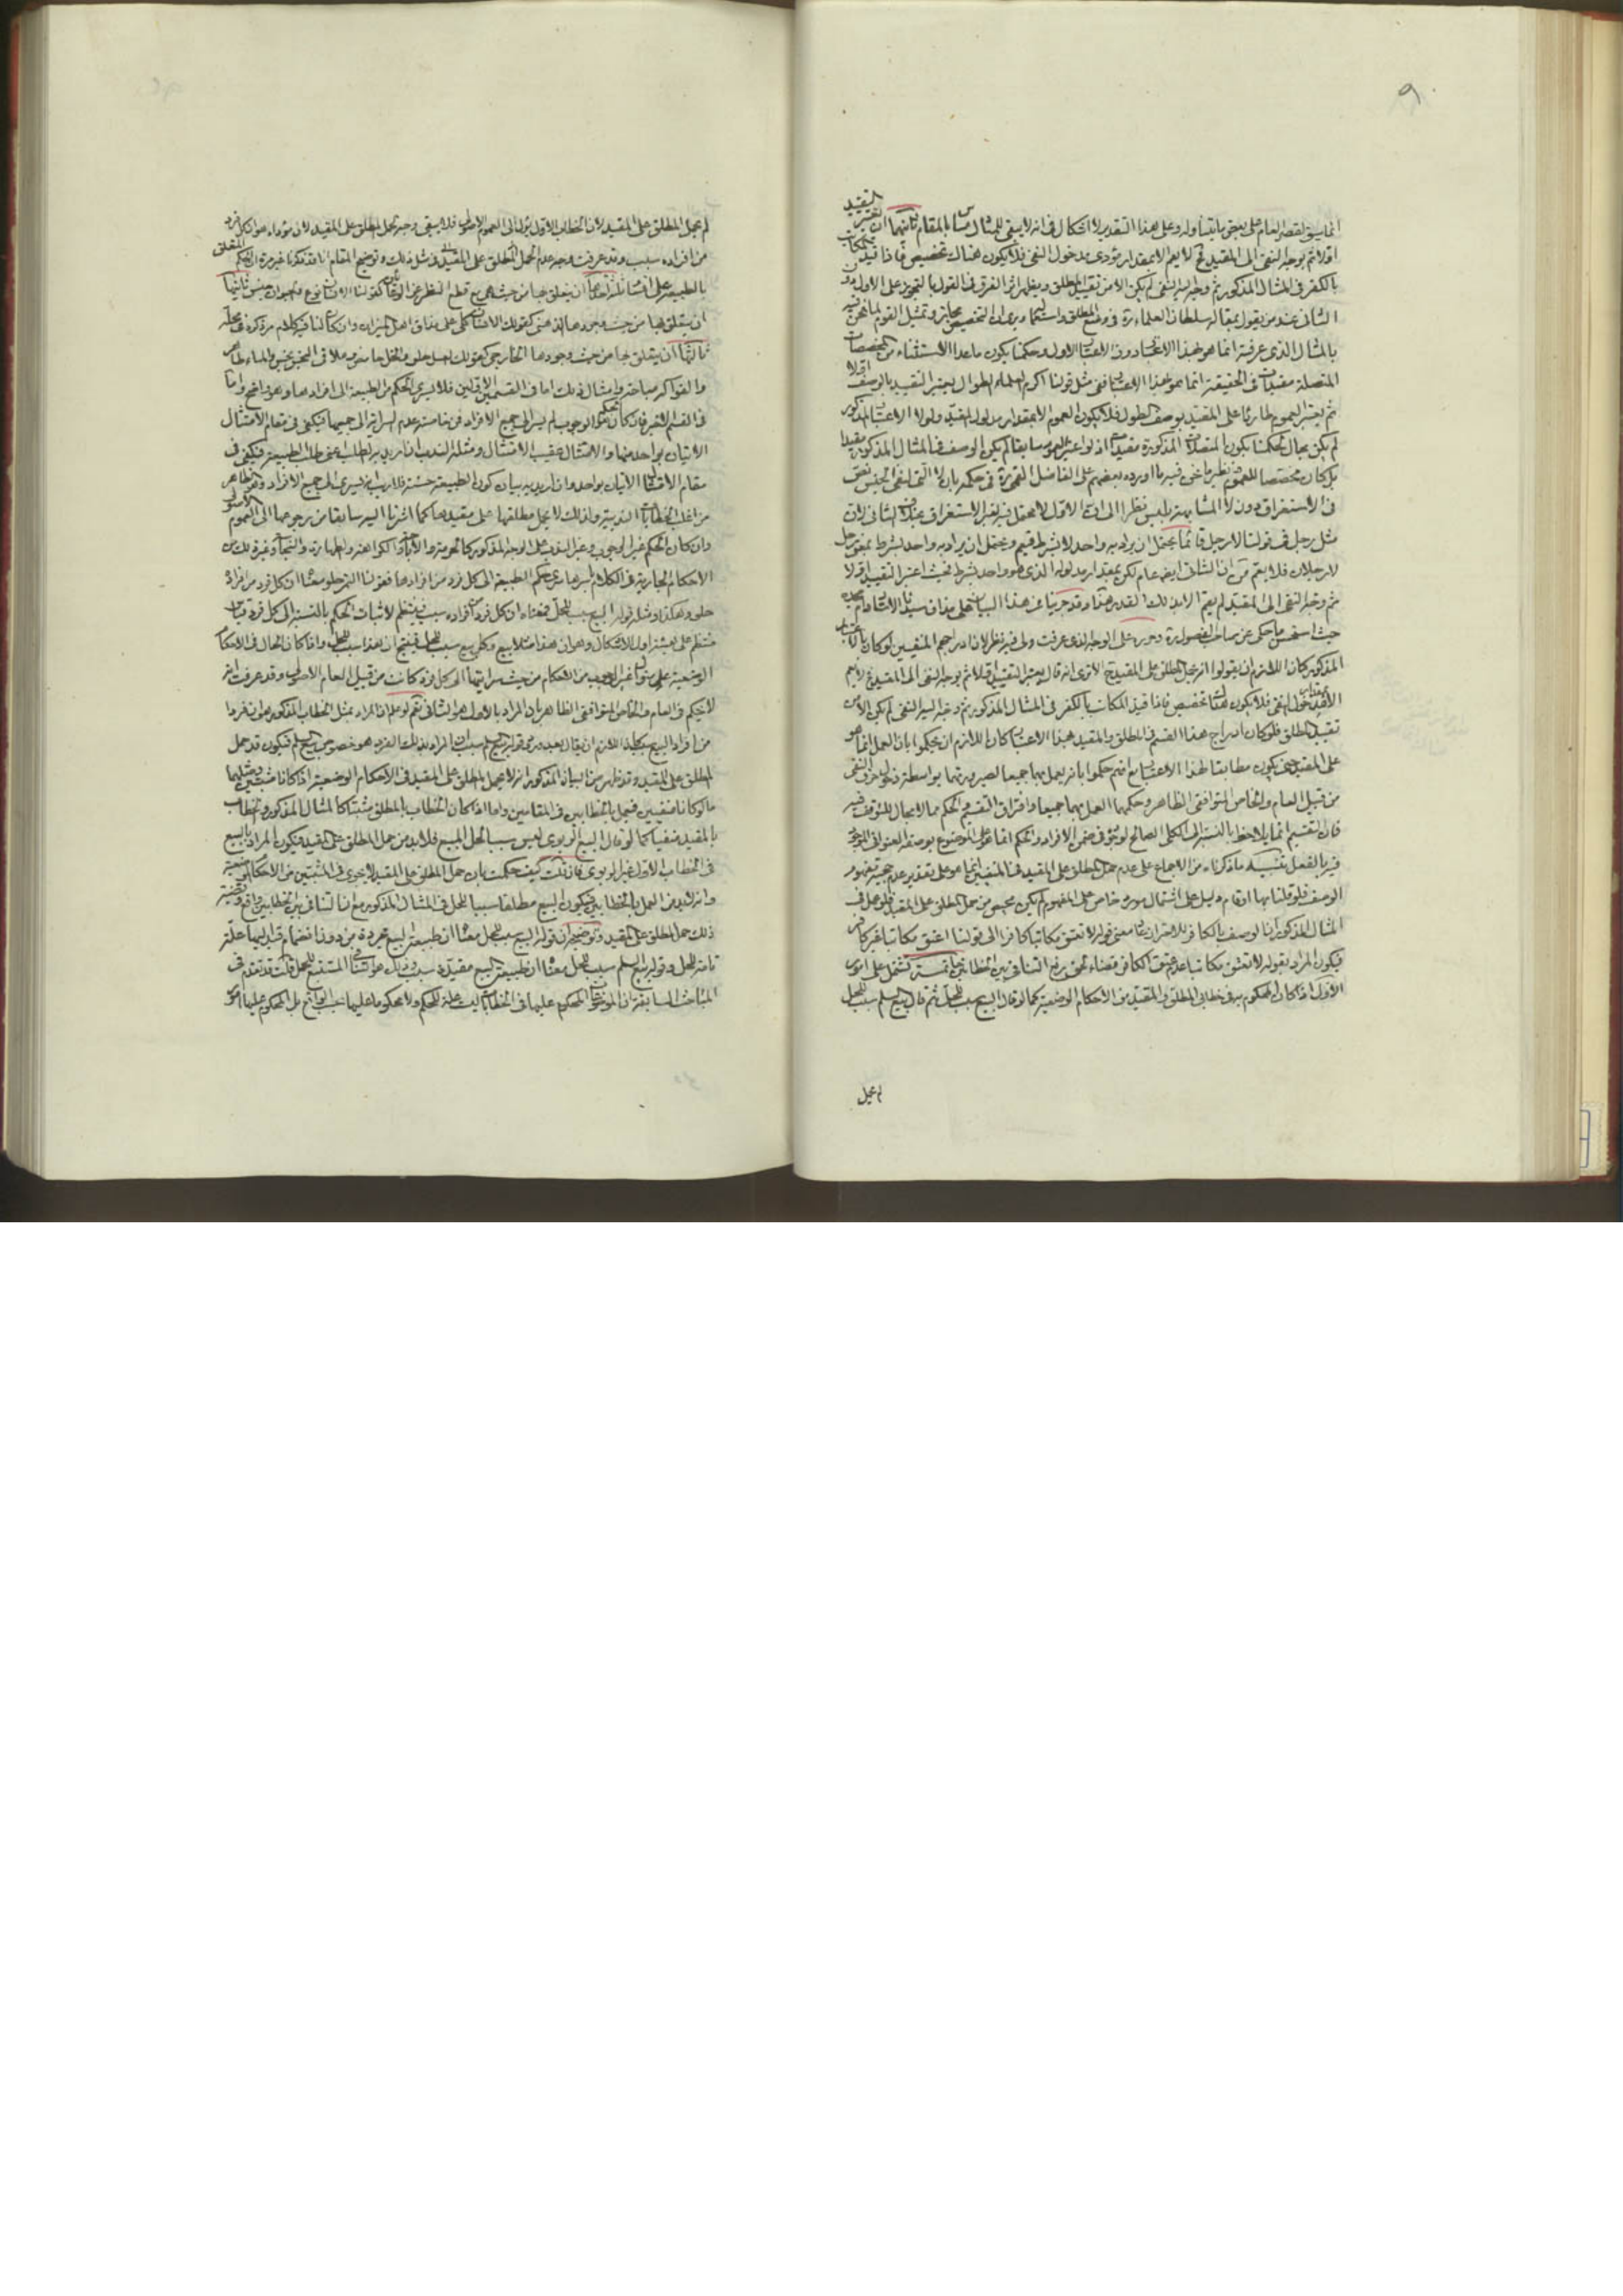 ٩
انما يسبق لقصر العام على بعض ما يتناوله وعلى هذا التقدير لا اشكال في انه لا يبقى للمثال مساس بالمقام ثانيهما ان يعتبر التقييد
اولا ثم يوجه النفى الى المقيد فلا يعم الا بمقدار مؤدى مدخول النفى فلا يكون هناك تخصيص فاذا قيد المكاتب
بالكفر في المثال المذكور ثم وجه اليه النفى لم يكن الا من تقييد المطلق ويظهر اثر الفرق في القول بالتجوز على الاول دون
الثانى عند من يقول بمقالة سلطان العلماء ره فى وضع المطلق واستعماله ويرى ان التخصيص مجاز وتمثيل القوم لما نحن فيه
بالمثال الذى عرفته انما هو بهذا الاعتبار دون الاعتبار الاول وحكمنا بكون ما عدا الاستثناء من المخصصات
المتصلة مقيدات في الحقيقة انما هو بهذا الاعتبار ففى مثل قولنا اكرم العلماء الطوال يعتبر التقييد بالوصف اولا
ثم يعتبر العموم طارئا على المقيد بوصف الطول فلا يكون العموم الا بمقدار مدلول المقيد ولولا الاعتبار المذكور
لم يكن مجال لحكمنا بكون المتصلات المذكورة مقيدات اذ لو اعتبر العموم سابقا لم يكن الوصف في المثال المذكور مقيدا
بل كان مخصصا للعموم نظير ما نحن فيه ما اورده بعضهم على الفاضل القمى ره فى حكمه بان لا التى لنفى الجنس نص
فى الاستغراق دون لا المشابهة بليس نظرا الى ان الاول لا يحتمل فيه لغير الاستغراق بخلاف الثانى لان
مثل رجل فى قولنا لا رجل قائما يحتمل ان يراد به واحد لا بشرط فيعم ويحتمل ان يراد به واحد بشرط بمعنى رجل
لا رجلان فلا يعم من ان الثانى ايضا عام لكن بمقدار مدلوله الذى هو واحد بشرط فحيث اعتبر التقييد اولا
ثم وجه النفى الى المقيد لم يعم الا بذلك القدر هذا وقد جرينا عن هذا البيان على مذاق سيدنا الاستاد دام مجده
حيث استحسن ما حكى عن صاحب الفصول ره وحرره على الوجه الذى عرفت ولى فيه نظر لان ادراجهم المنفيين لو كان بالاعتبار
المذكور كان اللازم ان يقولوا انه يحمل المطلق على المقيد الا ترى انه قال يعتبر التقييد اولا ثم يوجه النفى الى المقيد فلا يعم
الا بمقدار مدخول النفى فلا يكون هناك تخصيص فاذا قيد المكاتب بالكفر فى المثال المذكور ثم وجه اليه النفى لم يكن الا من
تقييد المطلق فلو كان ادراج هذا القسم فى المطلق والمقيد بهذا الاعتبار كان اللازم ان يحكموا بان العمل انما هو
على المقيد حتى يكون مطابقا لهذا الاعتبار مع انهم حكموا بانه يعمل بهما جميعا لصيرورتهما بواسطة دخول حرف النفى
من قبيل العام والخاص المتوافقى الظاهر وحكمهما العمل بهما جميعا وافتراق التقسيم والحكم مما لا مجال للتوقف فيه
فان التقسيم انما يلاحظ بالنسبة الى الكلى الصالح لوجوده فى ضمن الافراد والحكم انما هو على الموضوع بوصفه العنوانى الموجود
فيه بالفعل تنبيه ما ذكرناه من الاجماع على عدم حمل المطلق على المقيد فى المنفيين انما هو على تقدير عدم حجية مفهوم
الوصف فلو قلنا بها او قام دليل على اشتمال مورد خاص على المفهوم لم يكن محيص من حمل المطلق على المقيد فلو علم فى
المثال المذكور ان الوصف بالكافر للاحتراز كان معنى قوله لا تعتق مكاتبا كافرا الى قولنا اعتق مكاتبا غير كافر
فيكون المراد بقوله لا تعتق مكاتبا عدم عتق الكافر قضاء لحق رفع التنافى بين الخطابين خاتمة تشتمل على امور
الاول اذا كان المحكوم به فى خطابى المطلق والمقيد من الاحكام الوضعية كما لو قال البيع سبب للحل ثم قال بيع السلم سبب للحل
لم يحمل
لم يحمل المطلق على المقيد لان الخطاب الاول يؤل الى العموم الاصولى فلا يبقى وجه لحمل المطلق على المقيد لان مؤداه هو ان كل فرد
من افراده سبب وقد عرفت وجه عدم الحمل المطلق على المقيد فى مثل ذلك وتوضيح المقام انا قد ذكرنا غير مرة ان الحكم المتعلق
بالطبيعة على اقسام ثلثة احدها ان يتعلق بها من حيث هى مع قطع النظر عن الوجود كقولنا الانسان نوع والحيوان جنس ثانيها
ان يتعلق بها من حيث وجودها الذهنى كقولك الانسان كلى على مذاق اهل الميزان وان كان لنا فيه كلام مر ذكره فى محله
ثالثها ان يتعلق بها من حيث وجودها الخارجى كقولك العسل حلو والخل حامض وملاقى النجس نجس والماء طاهر
والفواكه مباحة وامثال ذلك اما فى القسمين الاولين فلا يسرى الحكم من الطبيعة الى افرادها وهو واضح واما
فى القسم الاخير فان كان الحكم هو الوجوب لم يسر الى جميع الافراد فمن خاصته عدم السراية الى جميعها فيكفى فى مقام الامتثال
الاتيان بواحد منها والامتثال عقيب الامتثال ومثله الندب ان اريد به الطلب اعنى طلب الطبيعة فيكفى فى
مقام الامتثال الاتيان بواحد وان اريد به بيان كون الطبيعة حسنة فلا ريب انه يسرى الى جميع الافراد وهو الظاهر
من اغلب الخطابات الندبية ولذلك لا يحمل مطلقها على مقيدها كما اشرنا اليه سابقا من رجوعها الى العموم الاصولى
وان كان الحكم غير الوجوب وغير الندب على الوجه المذكور كالحرمة والاباحة والكراهة والطهارة والنجاسة وغير ذلك من
الاحكام الجارية فى الكلام باسرها سرى حكم الطبيعة الى كل فرد من افرادها فقولنا التمر حلو معناه ان كل فرد من افراده
حلو وهكذا ومثله قوله البيع سبب للحل فمعناه ان كل فرد من افراده سبب فينتظم لاثبات الحكم بالنسبة الى كل فرد قياس
منتظم على هيئة اول الاشكال وهو ان هذا مثلا بيع وكل بيع سبب للحل فينتج ان هذا سبب للحل واذا كان الحال فى الاحكام
الوضعية على منوال غير الوجوب من الاحكام من حيث سرايتها الى كل فرد كانت من قبيل العام الاصولى وقد عرفت انه
لا يحكم فى العام والخاص المتوافقى الظاهر بان المراد بالاول هو الثانى نعم لو علم ان المراد بمثل الخطاب المذكور هو ان فردا
من افراد البيع سبب للحل اللازم ان يقال بعد ورود قوله بيع السلم سبب ان المراد بذلك الفرد هو خصوص بيع السلم فيكون قد حمل
المطلق على المقيد وقد ظهر من البيان المذكور انه لا يحمل المطلق على المقيد فى الاحكام الوضعية اذا كانا مثبتين ومثلهما
ما لو كانا منفيين فيعمل بالخطابين فى المقامين واما اذا كان الخطاب بالمطلق مثبتا كالمثال المذكور والخطاب
بالمقيد منفيا كما لو قال البيع الربوى ليس سببا لحل المبيع فلا بد من حمل المطلق على المقيد فيكون المراد بالبيع
فى الخطاب الاول غير الربوى فان قلت كيف حكمت بان حمل المطلق على المقيد لا يجرى فى المثبتين من الاحكام الوضعية
وانه لا بد فى العمل بالخطابين فيكون البيع مطلقا سببا للحل فى المثال المذكور مع ان التنافى بين الخطابين واقع وقضية
ذلك حمل المطلق على المقيد وتوضيحه ان قوله البيع سبب للحل معناه ان طبيعة البيع مجردة من دون انضمام قيد اليها علة
تامة للحل وقوله بيع السلم سبب للحل معناه ان طبيعة البيع مقيدة سبب وذلك هو التنافى المستتبع للحمل قلت قد تقدم فى
المباحث السابقة ان الموضوعات المحكوم عليها فى الخطابات ليست علة للحكم ولا محكوما عليها بحسب الواقع بل المحكوم عليها هو